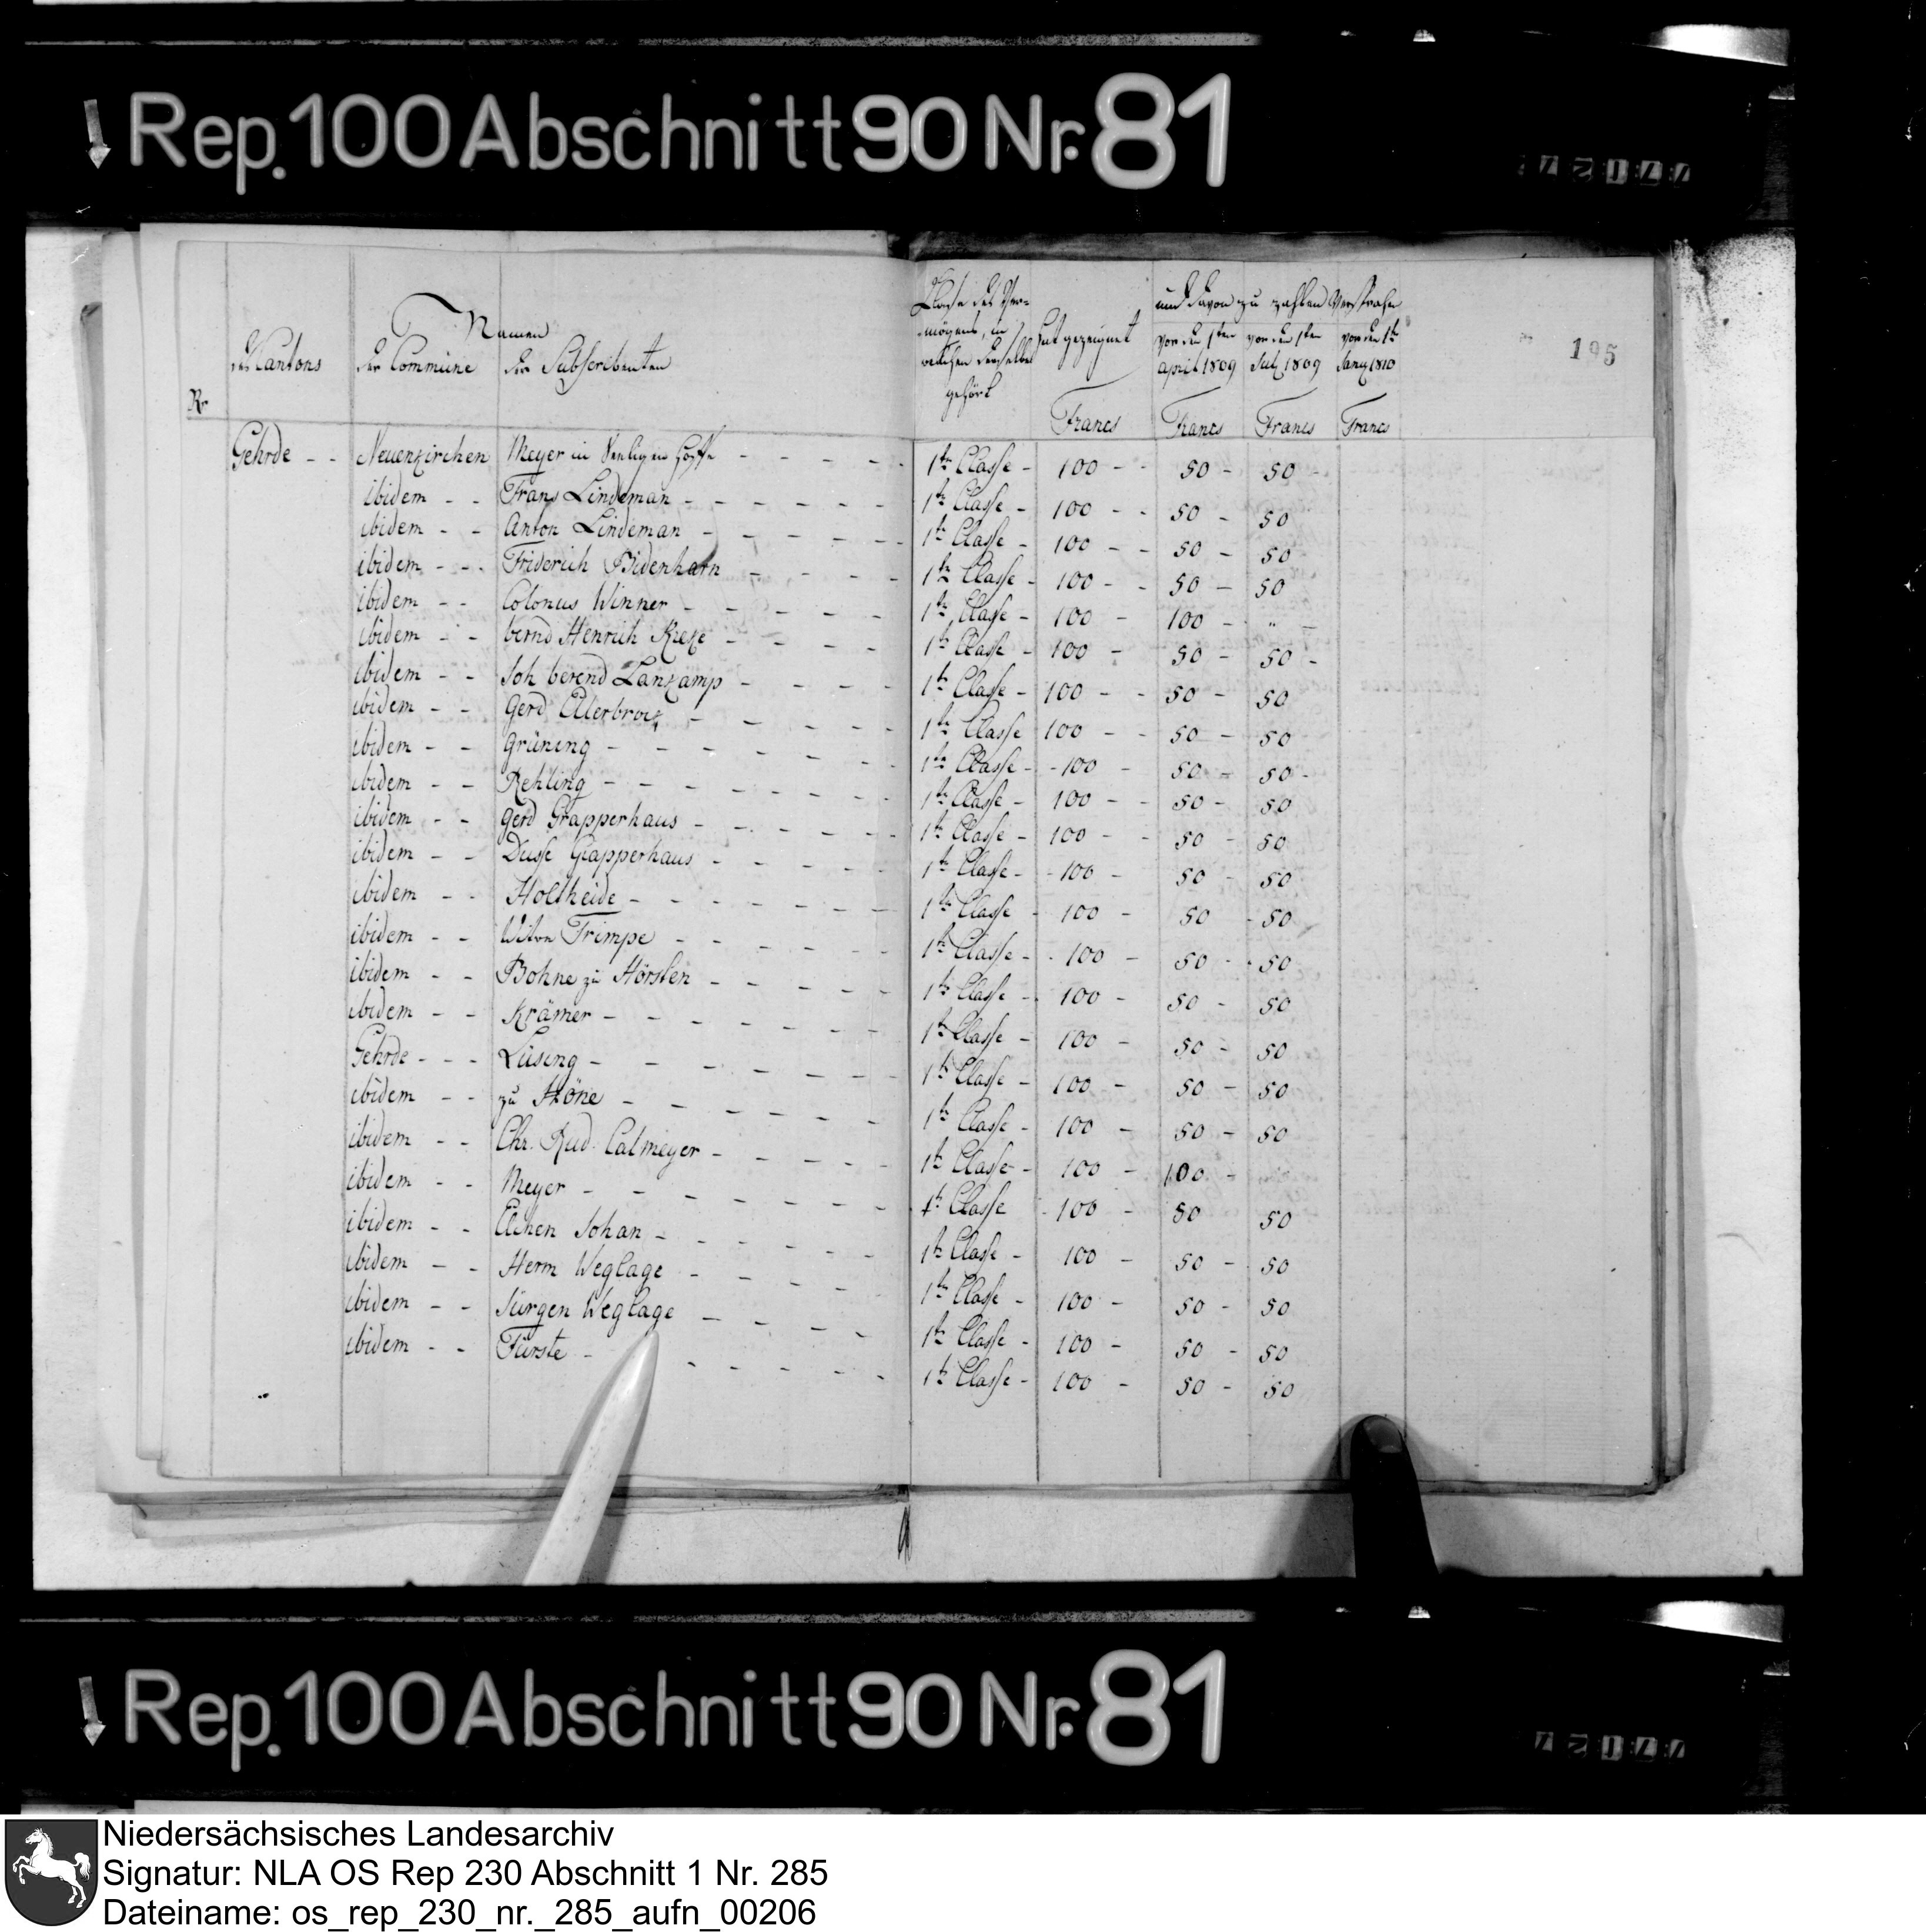 Rep. 100 Abschnitt 90 Nr. 81
195
Namen
des Cantons
der Commüne
der Subscribenten
Classe des Ver-
mögens, in
welchen derselbe
gehört
hat gezeignet
und davon zu zahlen versprochen
vor den 1ten april 1809
vor den 1ten July 1809
vor den 1t Janÿ 1810
Nr
Francs Francs Francs Francs
Gehrde - - Neuenkirchen Meyer in 1te Classe - 100 - - 50 - 50 -
ibidem - - Frans Lindeman - 1te Classe - 100 - - 50 - 50
ibidem - - Anton Lindeman - 1te Classe - 100 - - 50 - 50
ibidem - - Friderich Bidenharn - 1te Classe - 100 - 50 - 50
ibidem - - Colonus Winner - 1te Classe - 100 - 100 - " -
ibidem - - bernd Henrich Kreke - 1te Classe - 100 - 50 - 50 -
ibidem - - Joh berend Lankamp - 1te Classe - 100 - - 50 - 50
ibidem - - Gerd Ellerbrock - 1te Classe 100 - - 50 - 50
ibidem - - Grüning - 1te Classe - 100 - 50 - 50 -
ibidem - - Rehling - 1te Classe - 100 - - 50 - 50
ibidem - - Gerd Grapperhaus - 1te Classe - 100 - - 50 - 50
ibidem - - Dusse Grapperhaus - 1te Classe - 100 - 50 - 50
ibidem - - Holtheide - 1te Classe - 100 - 50 - 50
ibidem - - Witwe Trimpe - 1te Classe - 100 - 50 - 50
ibidem - - Bohne zu Hörsten - 1te Classe - 100 - 50 - 50
ibidem - - Krämer - 1te Classe - 100 - 50 - 50
Gehrde - - - Lüsing - 1te Classe - 100 - 50 - 50
ibidem - - zu Höne - 1te Classe - 100 - 50 - 50
ibidem - - Chr. Rud. Calmeyer - 1te Classe - 100 - 100 -
ibidem - - Meyer - 1te Classe - 100 - 50 50
ibidem - - Johan - 1te Classe - 100 - 50 - 50
ibidem - - Herm Weglage - 1te Classe - 100 - 50 - 50
ibidem - - Jürgen Weglage - 1te Classe - 100 - 50 - 50
ibidem - - Fürste - 1te Classe - 100 - 50 - 50
Rep. 100 Abschnitt 90 Nr. 81
Niedersächsisches Landesarchiv
Signatur: NLA OS Rep 230 Abschnitt 1 Nr. 285
Dateiname: os_rep_230_nr._285_aufn_00206